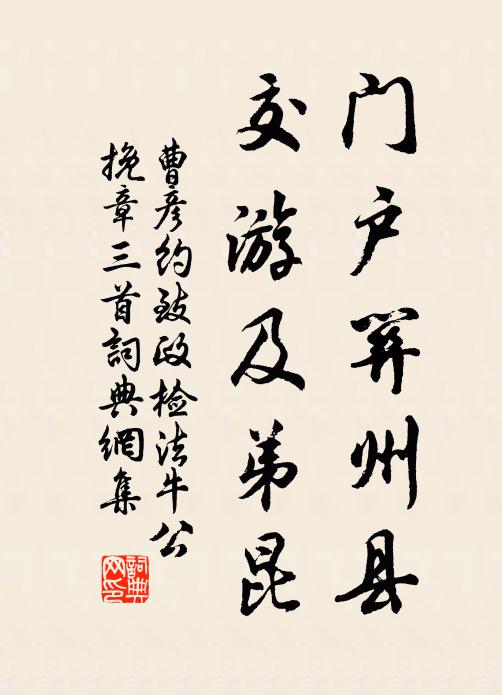 门户羿州县
交游及弟昆
曹彦约致政检法牛公
挽章三首词典网集
詞典网印